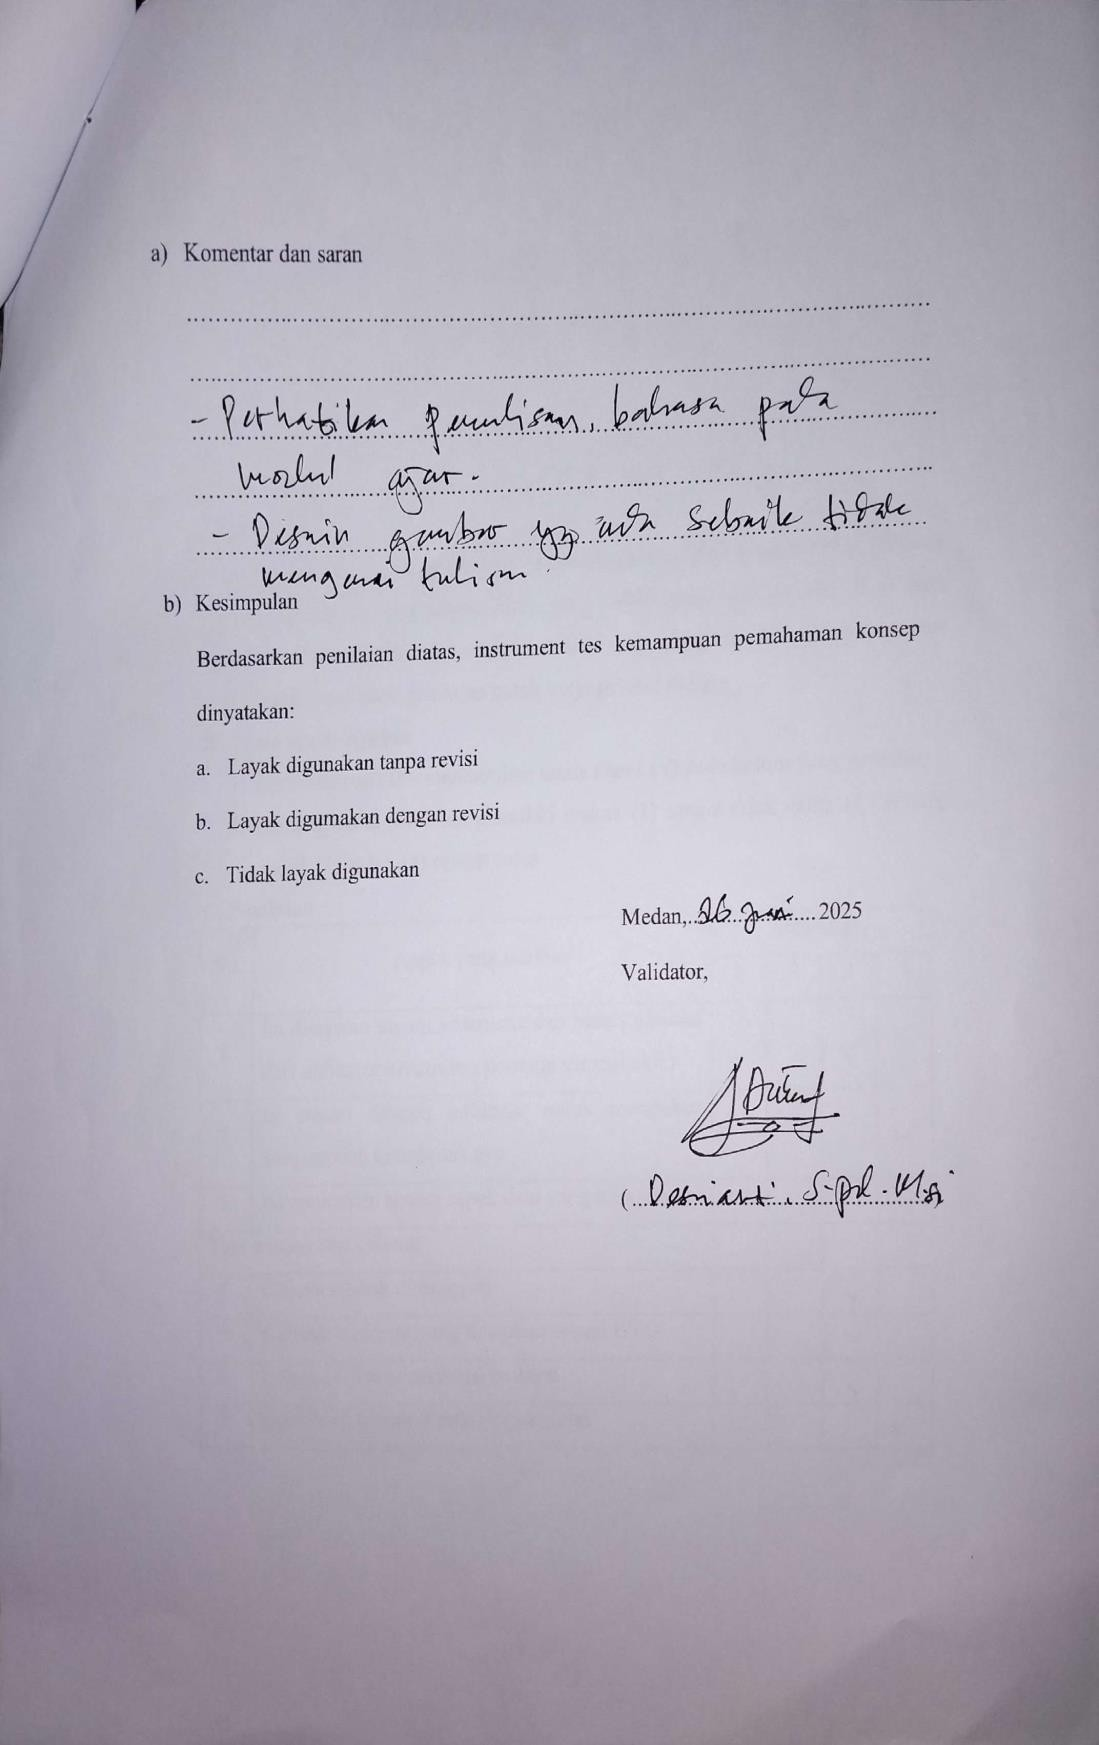 a) Komentar dan saran
- Perhatikan penulisan, bahasa pada
modul ajar.
- Desain gambar yg ada sebaik tidak
mengenai tulisan.
b) Kesimpulan
Berdasarkan penilaian diatas, instrument tes kemampuan pemahaman konsep
dinyatakan:
a. Layak digunakan tanpa revisi
b. Layak digumakan dengan revisi
c. Tidak layak digunakan
Medan, 26 Juni 2025
Validator,
(Desnianti, S.pd. M.si